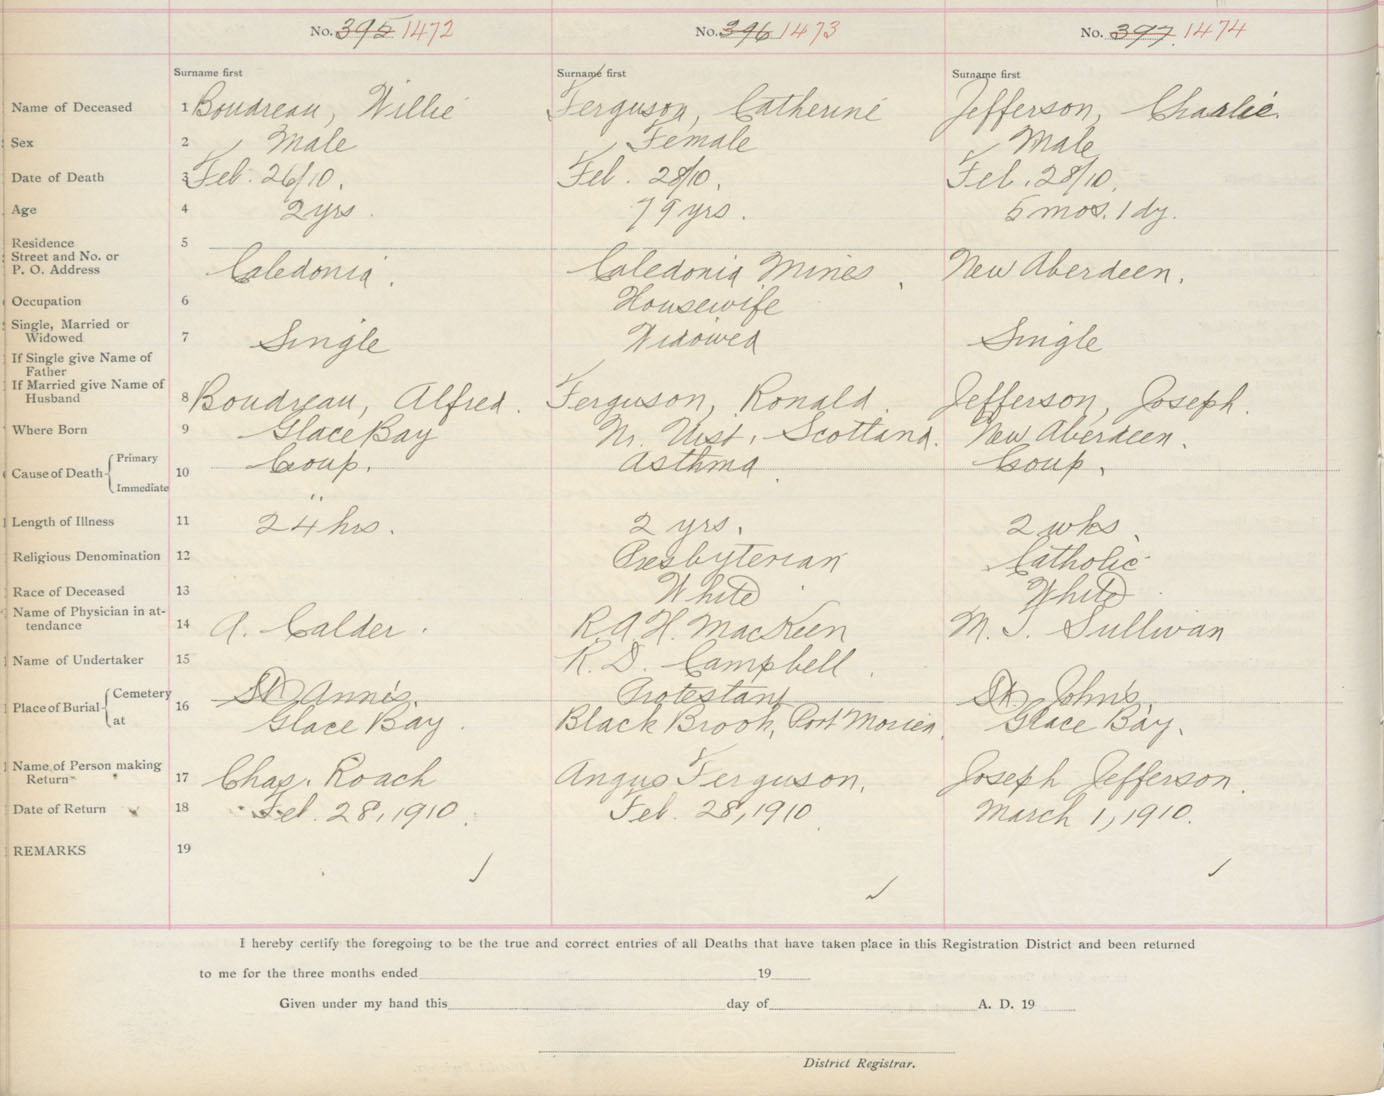 No. 395 1472 No. 396 1473 No. 397 1474
Surname first Surname first Surname first
Name of Deceased 1 Boudreau, Willie Ferguson, Catherine Jefferson, Charlie.
Sex 2 Male Female Male
Date of Death 3 Feb. 26/10. Feb. 28/10. Feb. 28/10.
Age 4 2 yrs. 79 yrs. 5 mos. 1 dy.
Residence 5
Street and No. or
P. O. Address Caledonia. Caledonia Mines, New Aberdeen.
Occupation 6 Housewife
Single, Married or
Widowed 7 Single Widowed Single
If Single give Name of
Father
If Married give Name of
Husband 8 Boudreau, Alfred. Ferguson, Ronald. Jefferson, Joseph.
Where Born 9 Glace Bay Nr. Uist, Scotland. New Aberdeen.
Cause of Death { Primary 10 Coup. Asthma. Coup.
Immediate "
Length of Illness 11 24 hrs. 2 yrs. 2 wks.
Religious Denomination 12 Presbyterian Catholic
Race of Deceased 13 White White
Name of Physician in at-
tendance 14 A. Calder. R. A. H. MacKeen M. T. Sullivan
Name of Undertaker 15 R. D. Campbell.
Place of Burial { Cemetery 16 St. Anne's Protestant St. John's
at Glace Bay. Black Brook, Port Morien. Glace Bay.
Name of Person making
Return 17 Chas. Roach Angus Ferguson. Joseph Jefferson.
Date of Return 18 Feb. 28, 1910. Feb. 28, 1910 March 1, 1910.
REMARKS 19
I hereby certify the foregoing to be the true and correct entries of all Deaths that have taken place in this Registration District and been returned
to me for the three months ended 19
Given under my hand this day of A. D. 19
District Registrar.